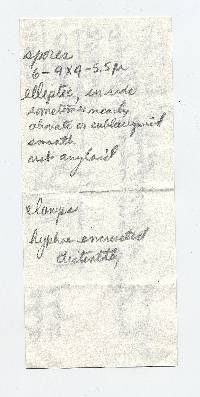 spores
6-9x4-5.5µ
elliptec in side
sometimes nearly
obovate or sublacrymoid
smooth
not amyloid
clamps
hyphae encrusted
distinctly